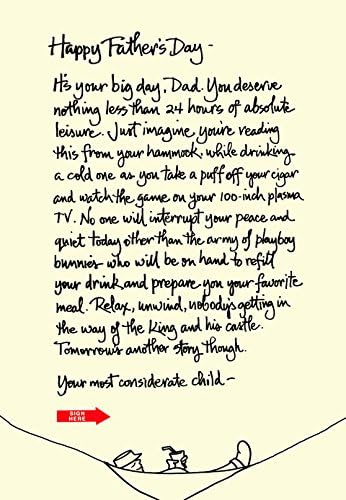 Happy Father's Day -
It's your big day, Dad. You deserve
nothing less than 24 hours of absolute
leisure. Just imagine you're reading
this from your hammock, while drinking
a cold one as you take a puff off your cigar
and watch the game on your 100-inch plasma
TV. No one will interrupt your peace and
quiet today other than the army of playboy
bunnies who will be on hand to refill
your drink and prepare you your favorite
meal. Relax, unwind, nobody's getting in
the way of the King and his castle.
Tomorrow's another story though.
Your most considerate child -
SIGN
HERE